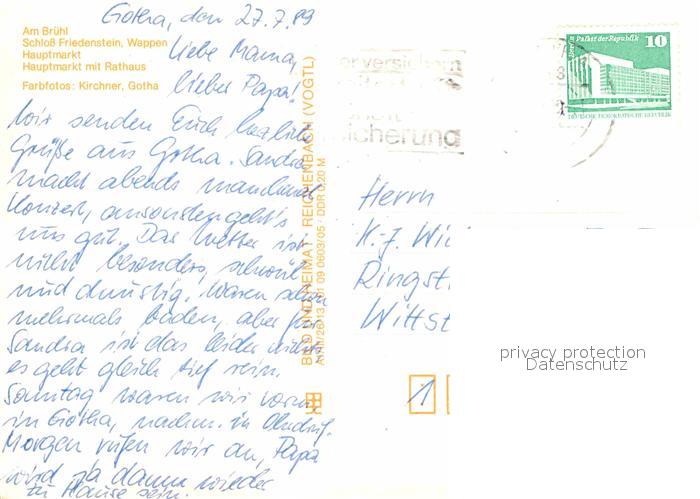 Gotha, den 27.7.89
Am Brühl
Schloß Friedenstein, Wappen
Hauptmarkt
Hauptmarkt mit Rathaus
Farbfotos: Kirchner, Gotha
Liebe Mama,
lieber Papa!
Wir senden Euch herzliche
Grüße aus Gotha. Sandra
macht abends manchmal
Konzert, ansonsten geht's
uns gut. Das Wetter ist
nicht besonders, schwül
und dunstig. Waren schon
mehrmals baden, aber für
Sandra ist das leider nichts
es geht gleich tief rein.
Sonntag waren wir vorm.
in Gotha, nachm. in Ohrdruf.
Morgen rufen wir an, Papa
wird ja dann wieder
zu Hause sein.
BILD UND HEIMAT REICHENBACH (VOGTL)
09 0603/05 · DDR 0,20 M
Berlin Palast der Republik
10
DEUTSCHE DEMOKRATISCHE REPUBLIK
er versichert
sicherung
Herrn
K.-J. Wi
Ringst
Wittst
1
privacy protection
Datenschutz